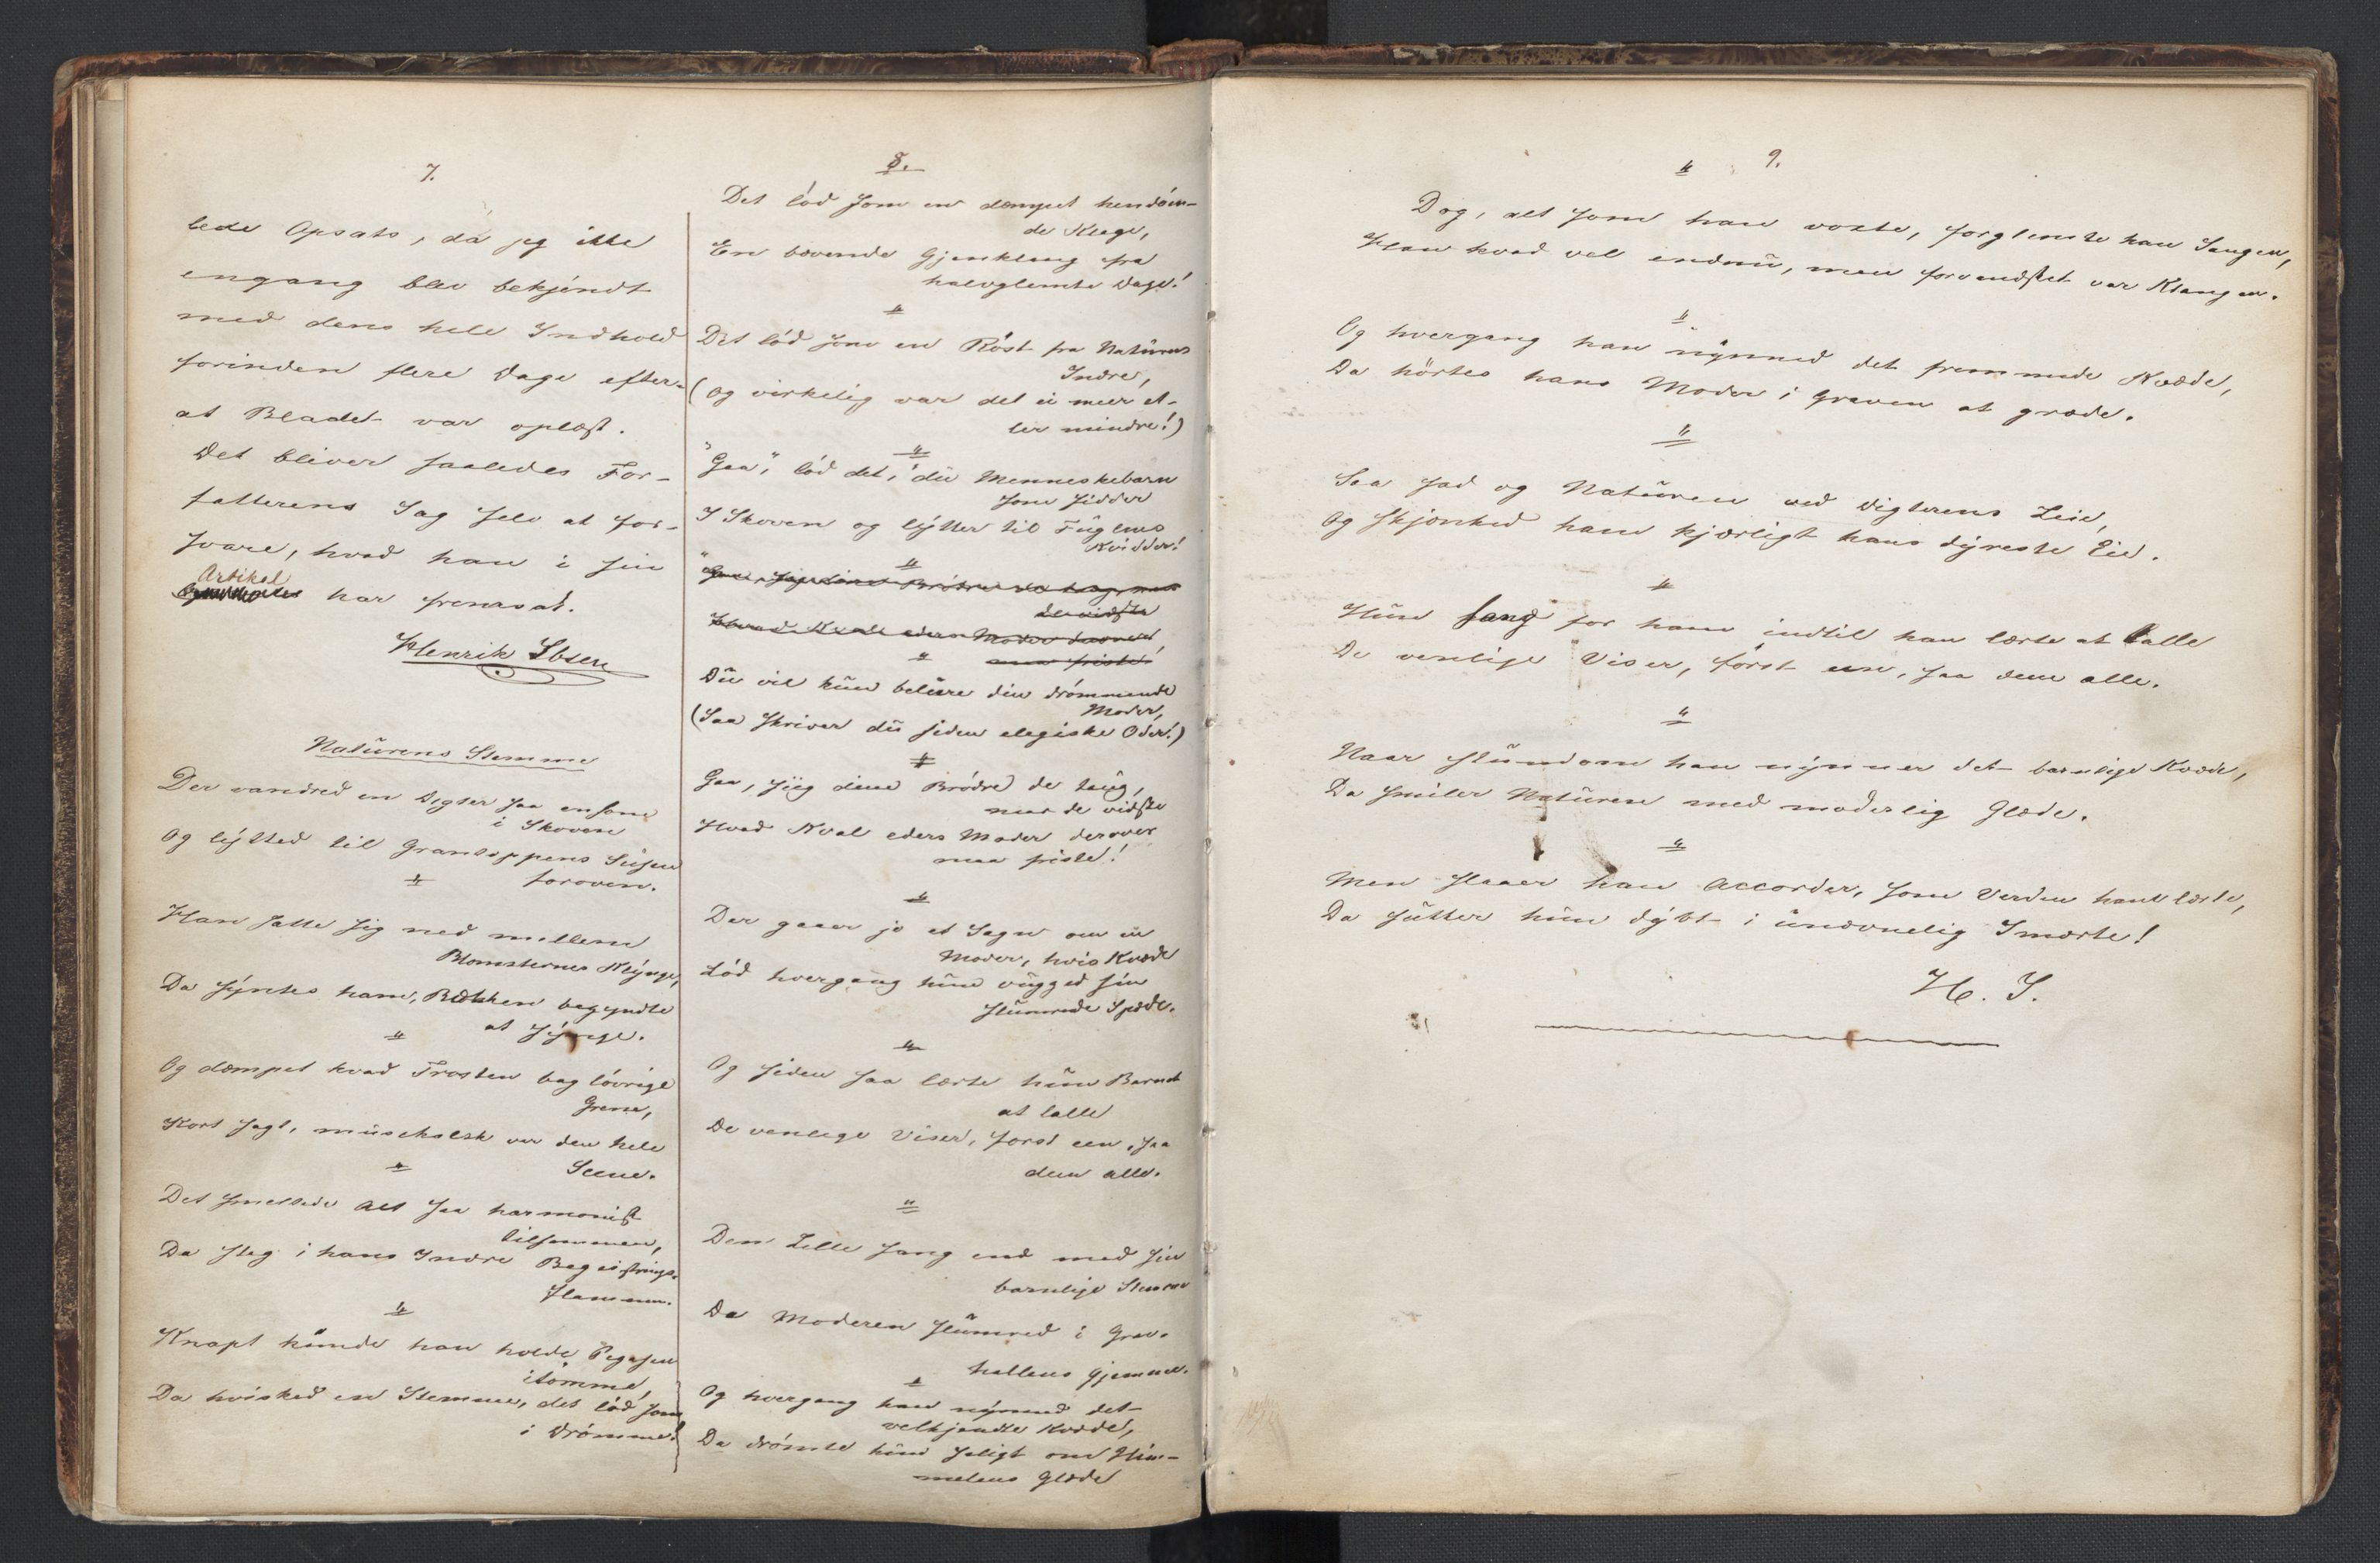 7.
lede Opsats, da jeg ikke
engang blev bekjendt
med dens hele Indhold
forinden flere Dage efter-
at Bladet var oplæst.
Det bliver saaledes For-
fatterens Sag selv at for-
svare, hvad han i sin
Artikel
har fremsat.
Henrik Ibsen
Natŭrens Stemme
Der vandred en Digter saa ensom
i Skoven
Og lytted til Grantoppens Sŭsen
foroven.
"
Han satte sig ned mellem
Blomsternes Klynge,
Da syntes ham, Bækken begyndte
at synge.
"
Og dæmpet kvad Trosten bag løvrige
Grene,
Kort sagt, mŭsikalsk var den hele
Scene.
"
Det smeltede Alt saa harmonisk
tilsammen,
Da steg i hans Indre Begeistrings-
flammen.
"
Knapt kŭnde han holde Pegasen
itømme,
Da hvisked en Stemme, det lød som
i Drømme!
8.
Det lød som en dæmpet hendøen-
de Klage,
En bævende Gjenklang fra
halvglemte Dage!
"
Det lød som en Røst fra Natŭrens
Indre,
(Og virkelig var det ei meer el-
ler mindre!)
"
"Gaa", lød det, "dŭ Menneskebarn
som sidder
I Skoven og lytter til Fŭglens
Kvidder!
"
"Gaa, siig dine Brødre de taug, naar
de vidste
Hvad Kval eders Moder derover
maa friste!
"
Dŭ vil kŭn belŭre din drømmende
Moder,
(Saa skriver dŭ siden elegiske Oder!)
"
Gaa, siig dine Brødre de taŭg,
naar de vidste
Hvad Kval eders Moder derover
maa friste!
"
Der gaaer jo et Sagn om en
Moder, hvis Kvæde
Lød hvergang hŭn vŭgged sin
slŭmrende Spæde.
"
Og siden saa lærte hŭn Barnet
at lalle
De venlige Viser, først een, saa
dem alle.
"
Den Lille sang end med sin
barnlige Stemme
Da Moderen slŭmred i Grav-
hallens Gjemme.
"
Og hvergang han nynned det
velkjendte Kvæde,
Da drømte hŭn saligt om Him-
melens Glæde
9.
"
Dog, alt som han voxte, forglemte han Sangen,
Han kvad vel endnŭ, men forvandsket var Klangen.
"
Og hvergang han nynned det fremmede Kvæde,
Da hørtes hans Moder i Graven at græde.
"
Saa sad og Natŭren ved Digterens Leie,
Og skjænked ham kjærligt hans dyreste Eie.
"
Hŭn sang for ham indtil han lærte at lalle
De venlige Viser, først een, saa dem alle.
"
Naar stŭndom han nynner det barnlige Kvæde,
Da smiler Natŭren med moderlig Glæde.
"
Men slaaer han Accorder, som Verden ham lærte,
Da sŭkker hŭn dybt i ŭnævnelig Smerte!
H. I.